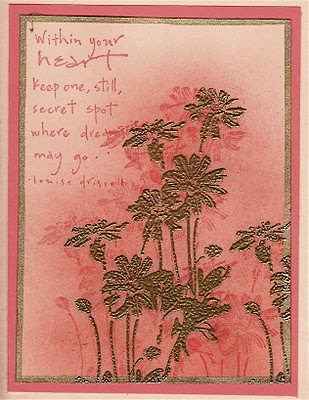 Within your
heart
keep one, still,
secret spot
where dreams
may go.
-louise driscoll